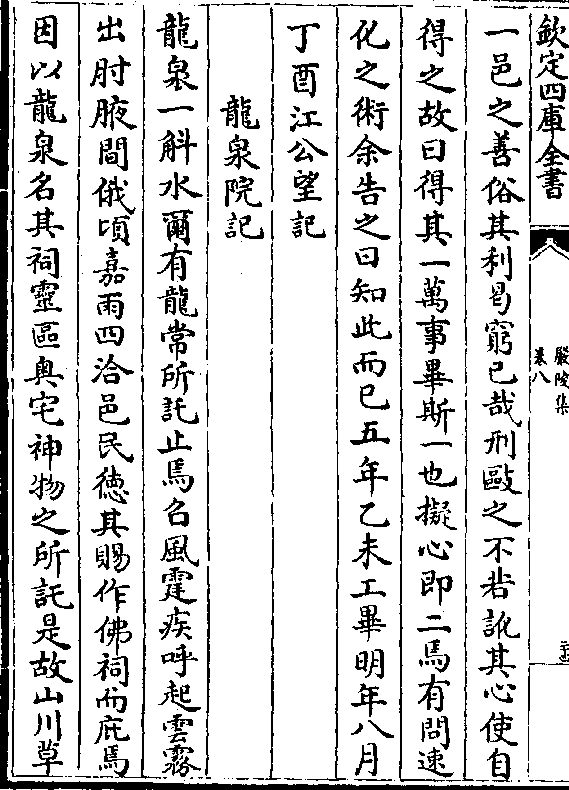 欽定四庫全書
嚴陵集
卷八
一邑之善俗其利曷窮已哉刑毆之不若訛其心使自
得之故曰得其一萬事畢斯一也擬心即二焉有問速
化之術余告之曰知此而已五年乙未工畢明年八月
丁酉江公望記
龍泉院記
龍泉一斛水爾有龍常所託止焉名風霆疾呼起雲霧
出肘腋間俄頃嘉雨四洽邑民德其賜作佛祠而庇焉
因以龍泉名其祠靈區奥宅神物之所託是故山川草